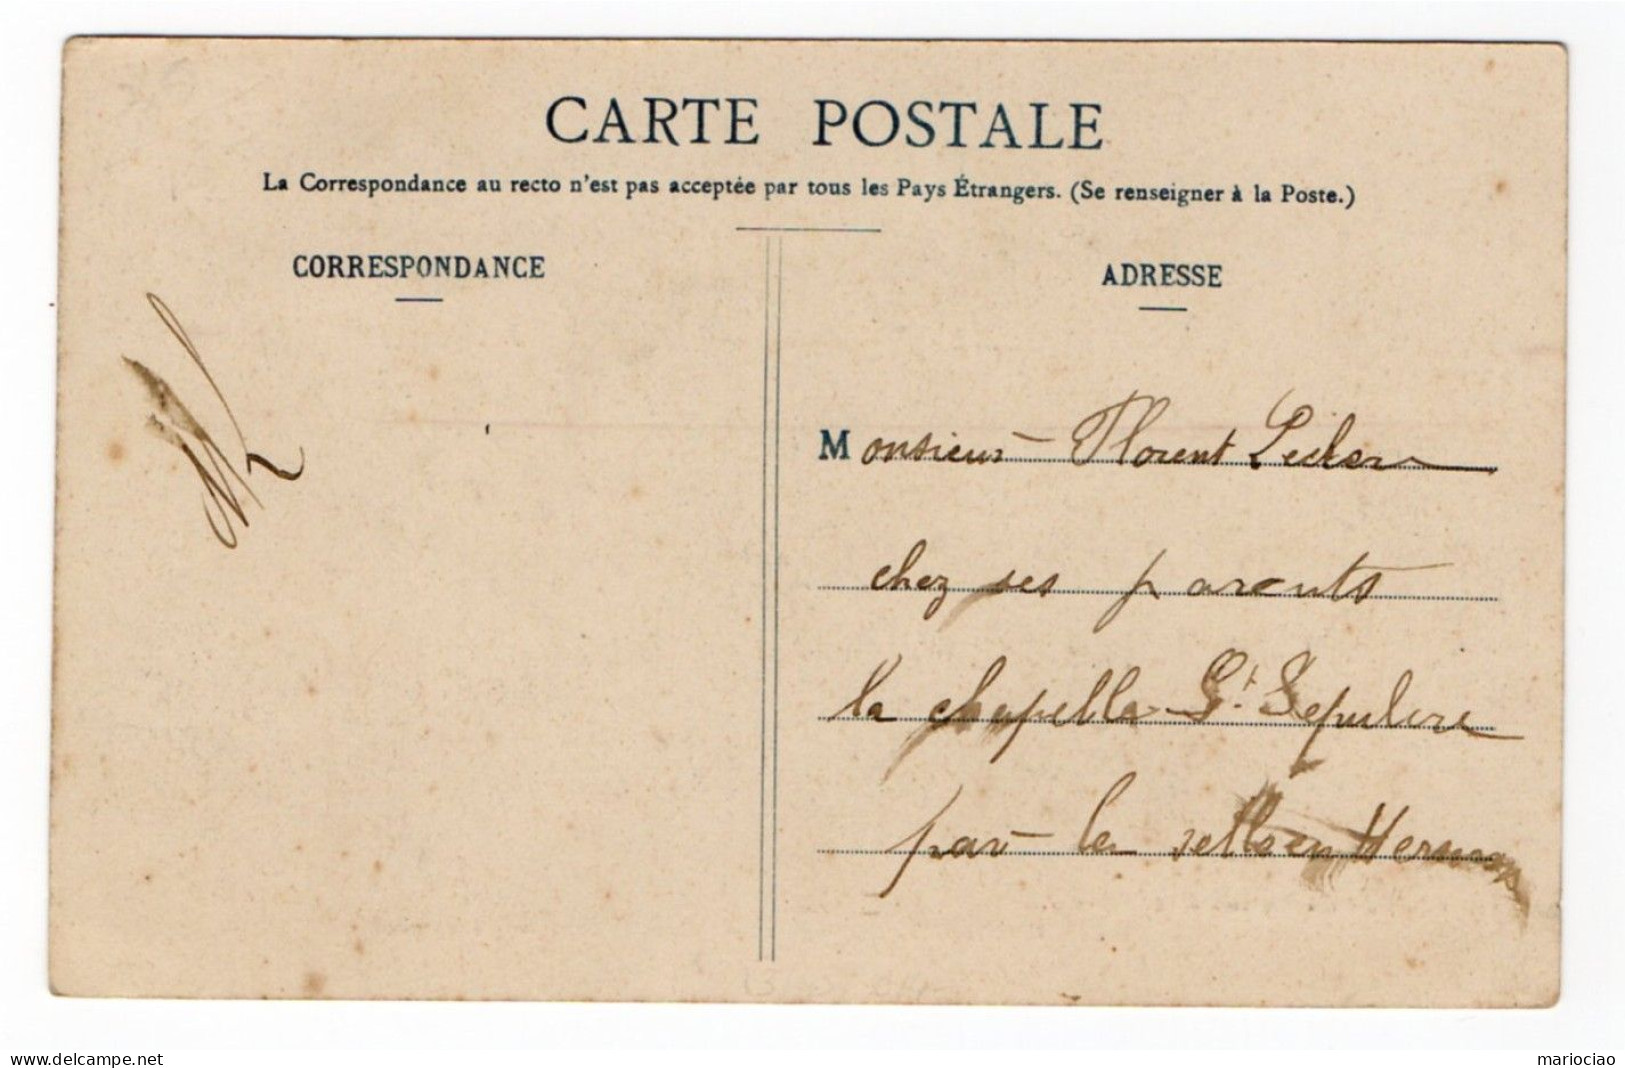 CARTE POSTALE
La Correspondance au recto n'est pas acceptée par tous les Pays Étrangers. (Se renseigner à la Poste.)
CORRESPONDANCE
ADRESSE
Monsieur Florent
chez ses parents
la chapelle St. Sepulcre
par la selle en Hermoy
delcampe.net
mariociao